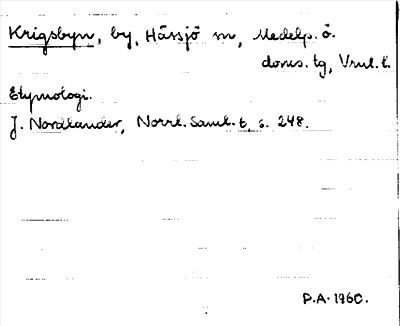 Krigsbyn, by, Hässjö sn, Medelp. ö.
doms. tg, Vnl. l.
Etymologi.
J. Nordlander, Norrl. Saml. s. 248.
P.A. 1960.